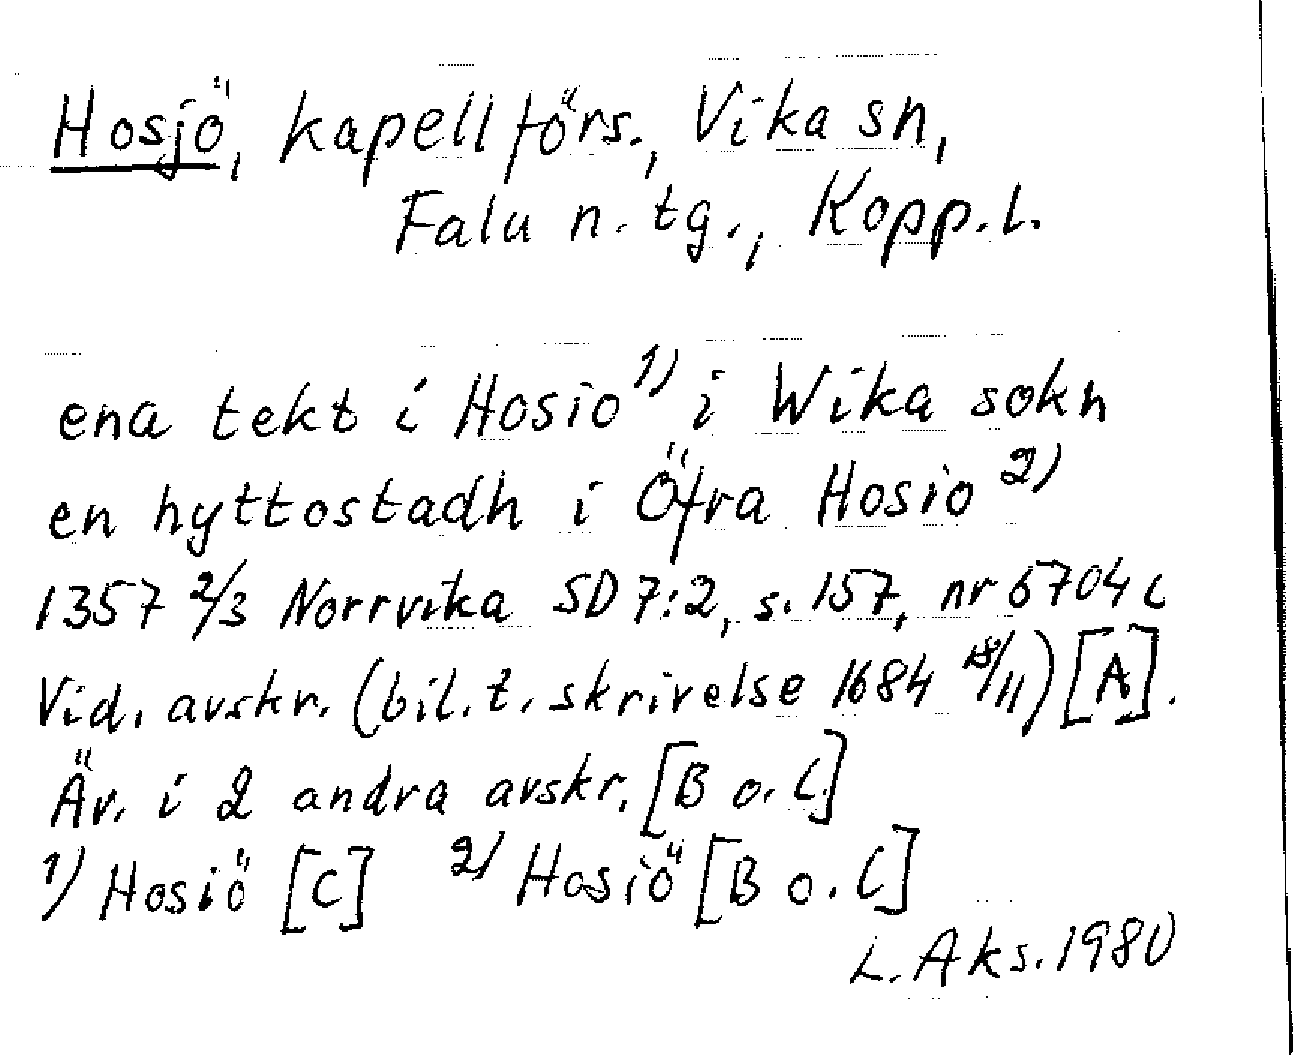 Hosjö, kapellförs., Vika sn,
Falu n. tg., Kopp. l.
ena tekt i Hosio 1) i Wika sokn
en hyttostadh i Öfra Hosio 2)
1357 2/3 Norrvika SD 7:2, s. 157, nr 5704 c
Vid. avskr. (bil. t. skrivelse 1684 18/11) [A].
Äv. i 2 andra avskr. [B o. C]
1) Hosiö [C] 2) Hosiö [B o. C]
L. Aks. 1980